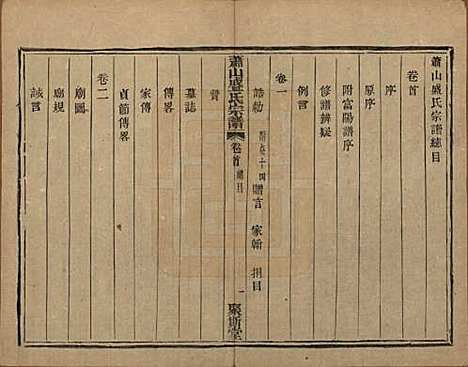 蕭山盛氏宗譜總目
卷首
原序
附富陽譜序
修譜辨疑
例言
卷一
誥勅 附卷十四 贈言 家翰 捐目
蕭山盛氏宗譜 卷首 總目 一 聚斯堂
贊
墓誌
傳畧
家傳
貞節傳畧
卷二
廟圖
廟規
誡言